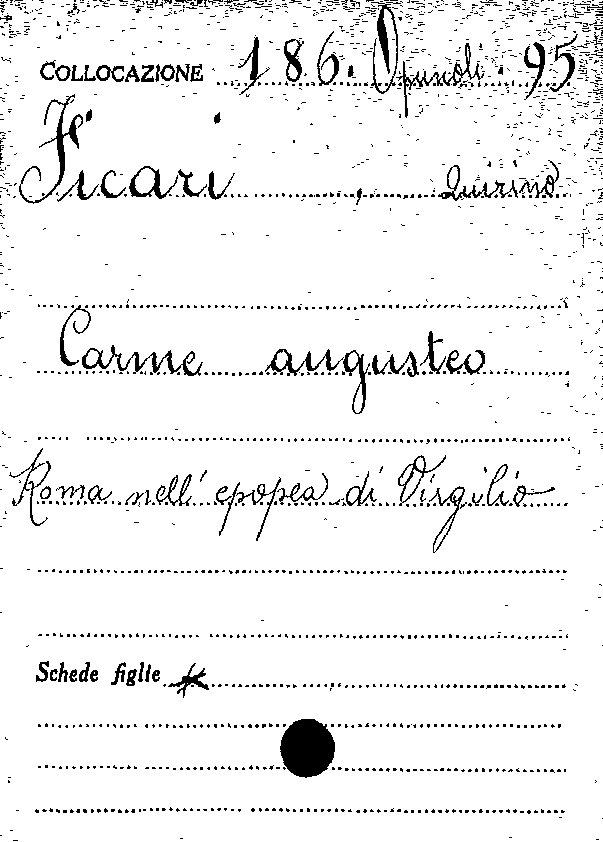 COLLOCAZIONE 186. Opuscoli. 95
Ficari, Quirino
Carme augusteo
Roma nell'epopea di Virgilio
Schede figlie